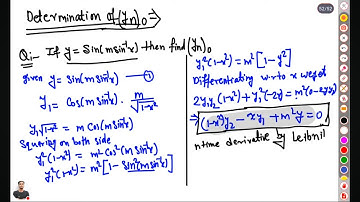 Determination of (yn)o →
52/52
Q:- If y = Sin(m sin⁻¹x) then find (yn)o
Given y = Sin(m sin⁻¹x) — ①
y₁ = Cos(m sin⁻¹x) . m/√1-x²
y₁√1-x² = m Cos(m sin⁻¹x)
Squaring on both side
y₁²(1-x²) = m² Cos²(m sin⁻¹x)
y₁²(1-x²) = m²[1 - Sin²(m sin⁻¹x)]
y₁²(1-x²) = m²[1-y²]
Differentiating w.r.to x we get
2y₁y₂(1-x²) + y₁²(-2x) = m²(0-2yy₁)
⇒ (1-x²)y₂ - xy₁ + m²y = 0
n time derivative by Leibnil